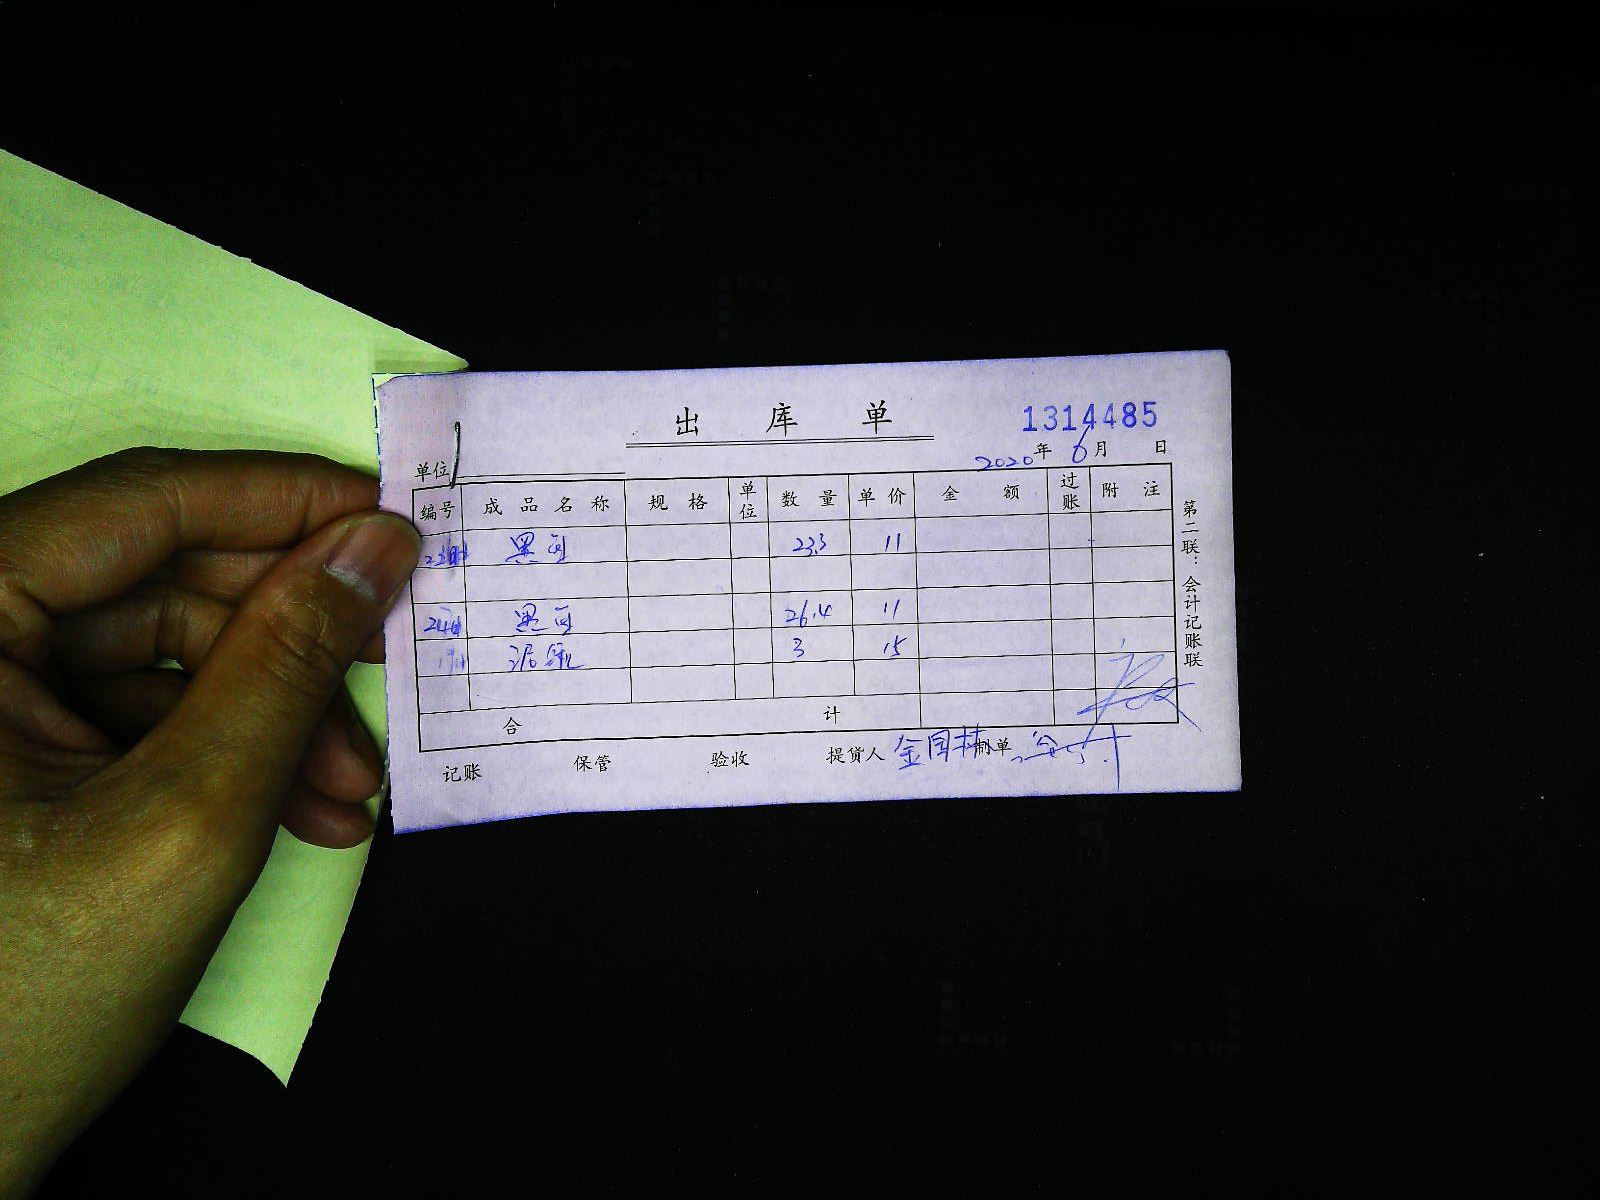 出 库 单
1314485
单位
2020年6月 日
编号 成品名称 规格 单位 数量 单价 金额 过账 附注
黑 23.3 11
黑 26.4 11
泥鳅 3 15
合 计
记账 保管 验收 提货人 金国林 制单
第二联：会计记账联